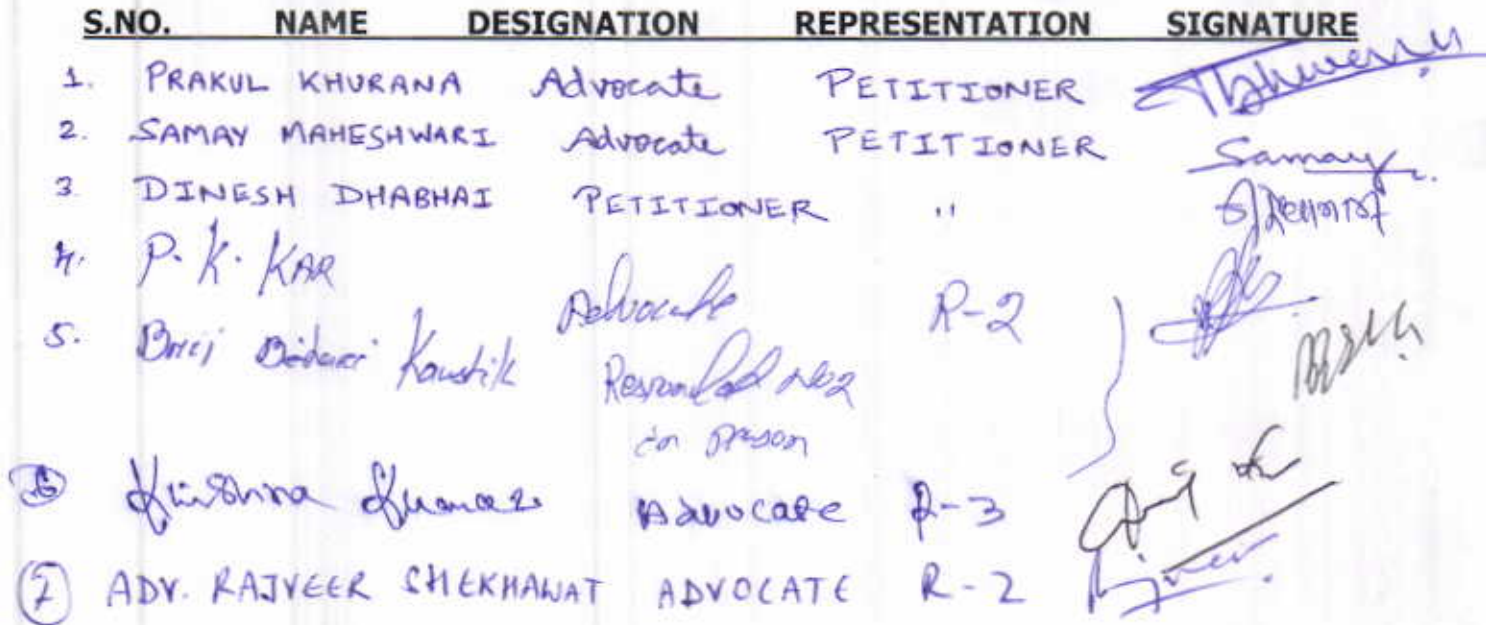 S.NO. NAME DESIGNATION REPRESENTATION SIGNATURE
1. PRAKUL KHURANA Advocate PETITIONER
2. SAMAY MAHESHWARI Advocate PETITIONER Samay
3 DINESH DHABHAI PETITIONER "
4. P. K. KAR Advocate R-2
5. Brij Kaushik Respondent No2
in person
6 Krishna Kumar ADVOCATE R-3
7 ADV. RAJVEER SHEKHAWAT ADVOCATE R-2